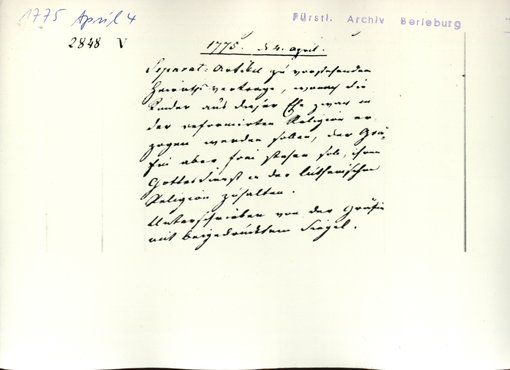 1775 April 4
Fürstl. Archiv Berleburg
2848 V
1775. d 4. April.
Separat-Artikel zu vorstehendem
Heiraths vertrage, wonach die
Kinder aus dieser Ehe zwar in
der reformirten Religion er
zogen werden sollen, der Grä-
fin aber frei stehen soll, ihren
Gottesdienst in der lutherischen
Religion zu halten.
Unterschrieben von der Gräfin
mit beigedrücktem Siegel.